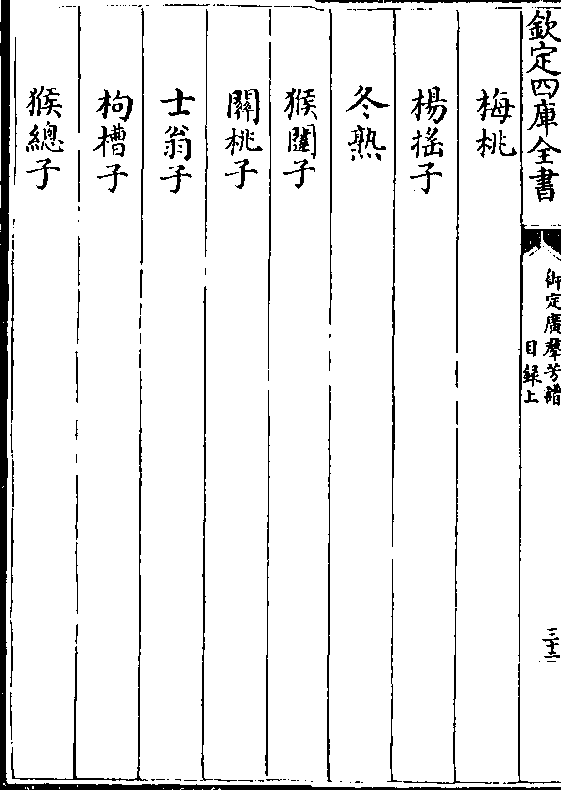 欽定四庫全書
御定廣羣芳譜
目錄上
三十二
梅桃
楊搖子
冬熟
猴闥子
關桃子
士翁子
枸槽子
猴總子